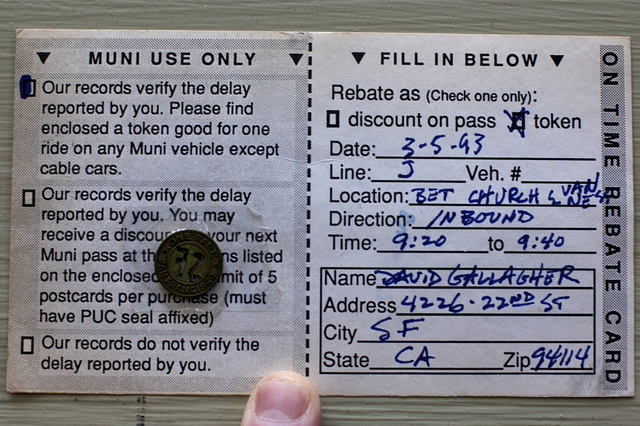 MUNI USE ONLY
Our records verify the delay
reported by you. Please find
enclosed a token good for one
ride on any Muni vehicle except
cable cars.
Our records verify the delay
reported by you. You may
receive a discou your next
Muni pass at th ns listed
on the enclosed mit of 5
postcards per purchase (must
have PUC seal affixed)
Our records do not verify the
delay reported by you.
FILL IN BELOW
Rebate as (Check one only):
discount on pass X token
Date: 3-5-93
Line: J Veh. #
Location: BET CHURCH & VAN NESS
Direction: INBOUND
Time: 9:20 to 9:40
Name DAVID GALLAGHER
Address 4226 - 22ND ST
City SF
State CA Zip 94114
ON TIME REBATE CARD